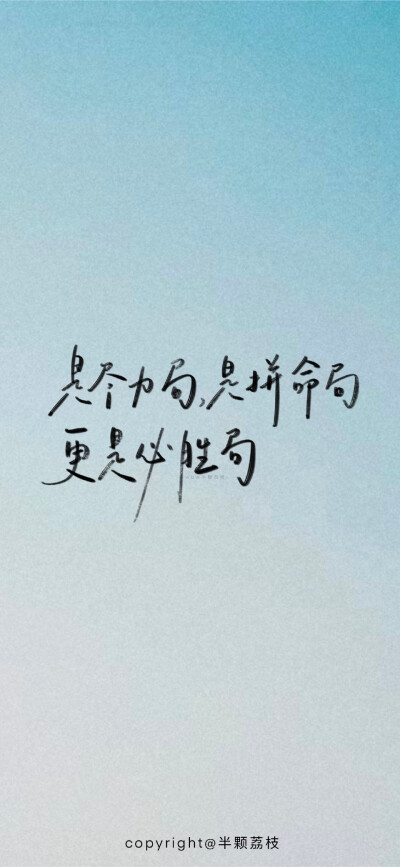 是尽力局,是拼命局
更是必胜局
copyright@半颗荔枝